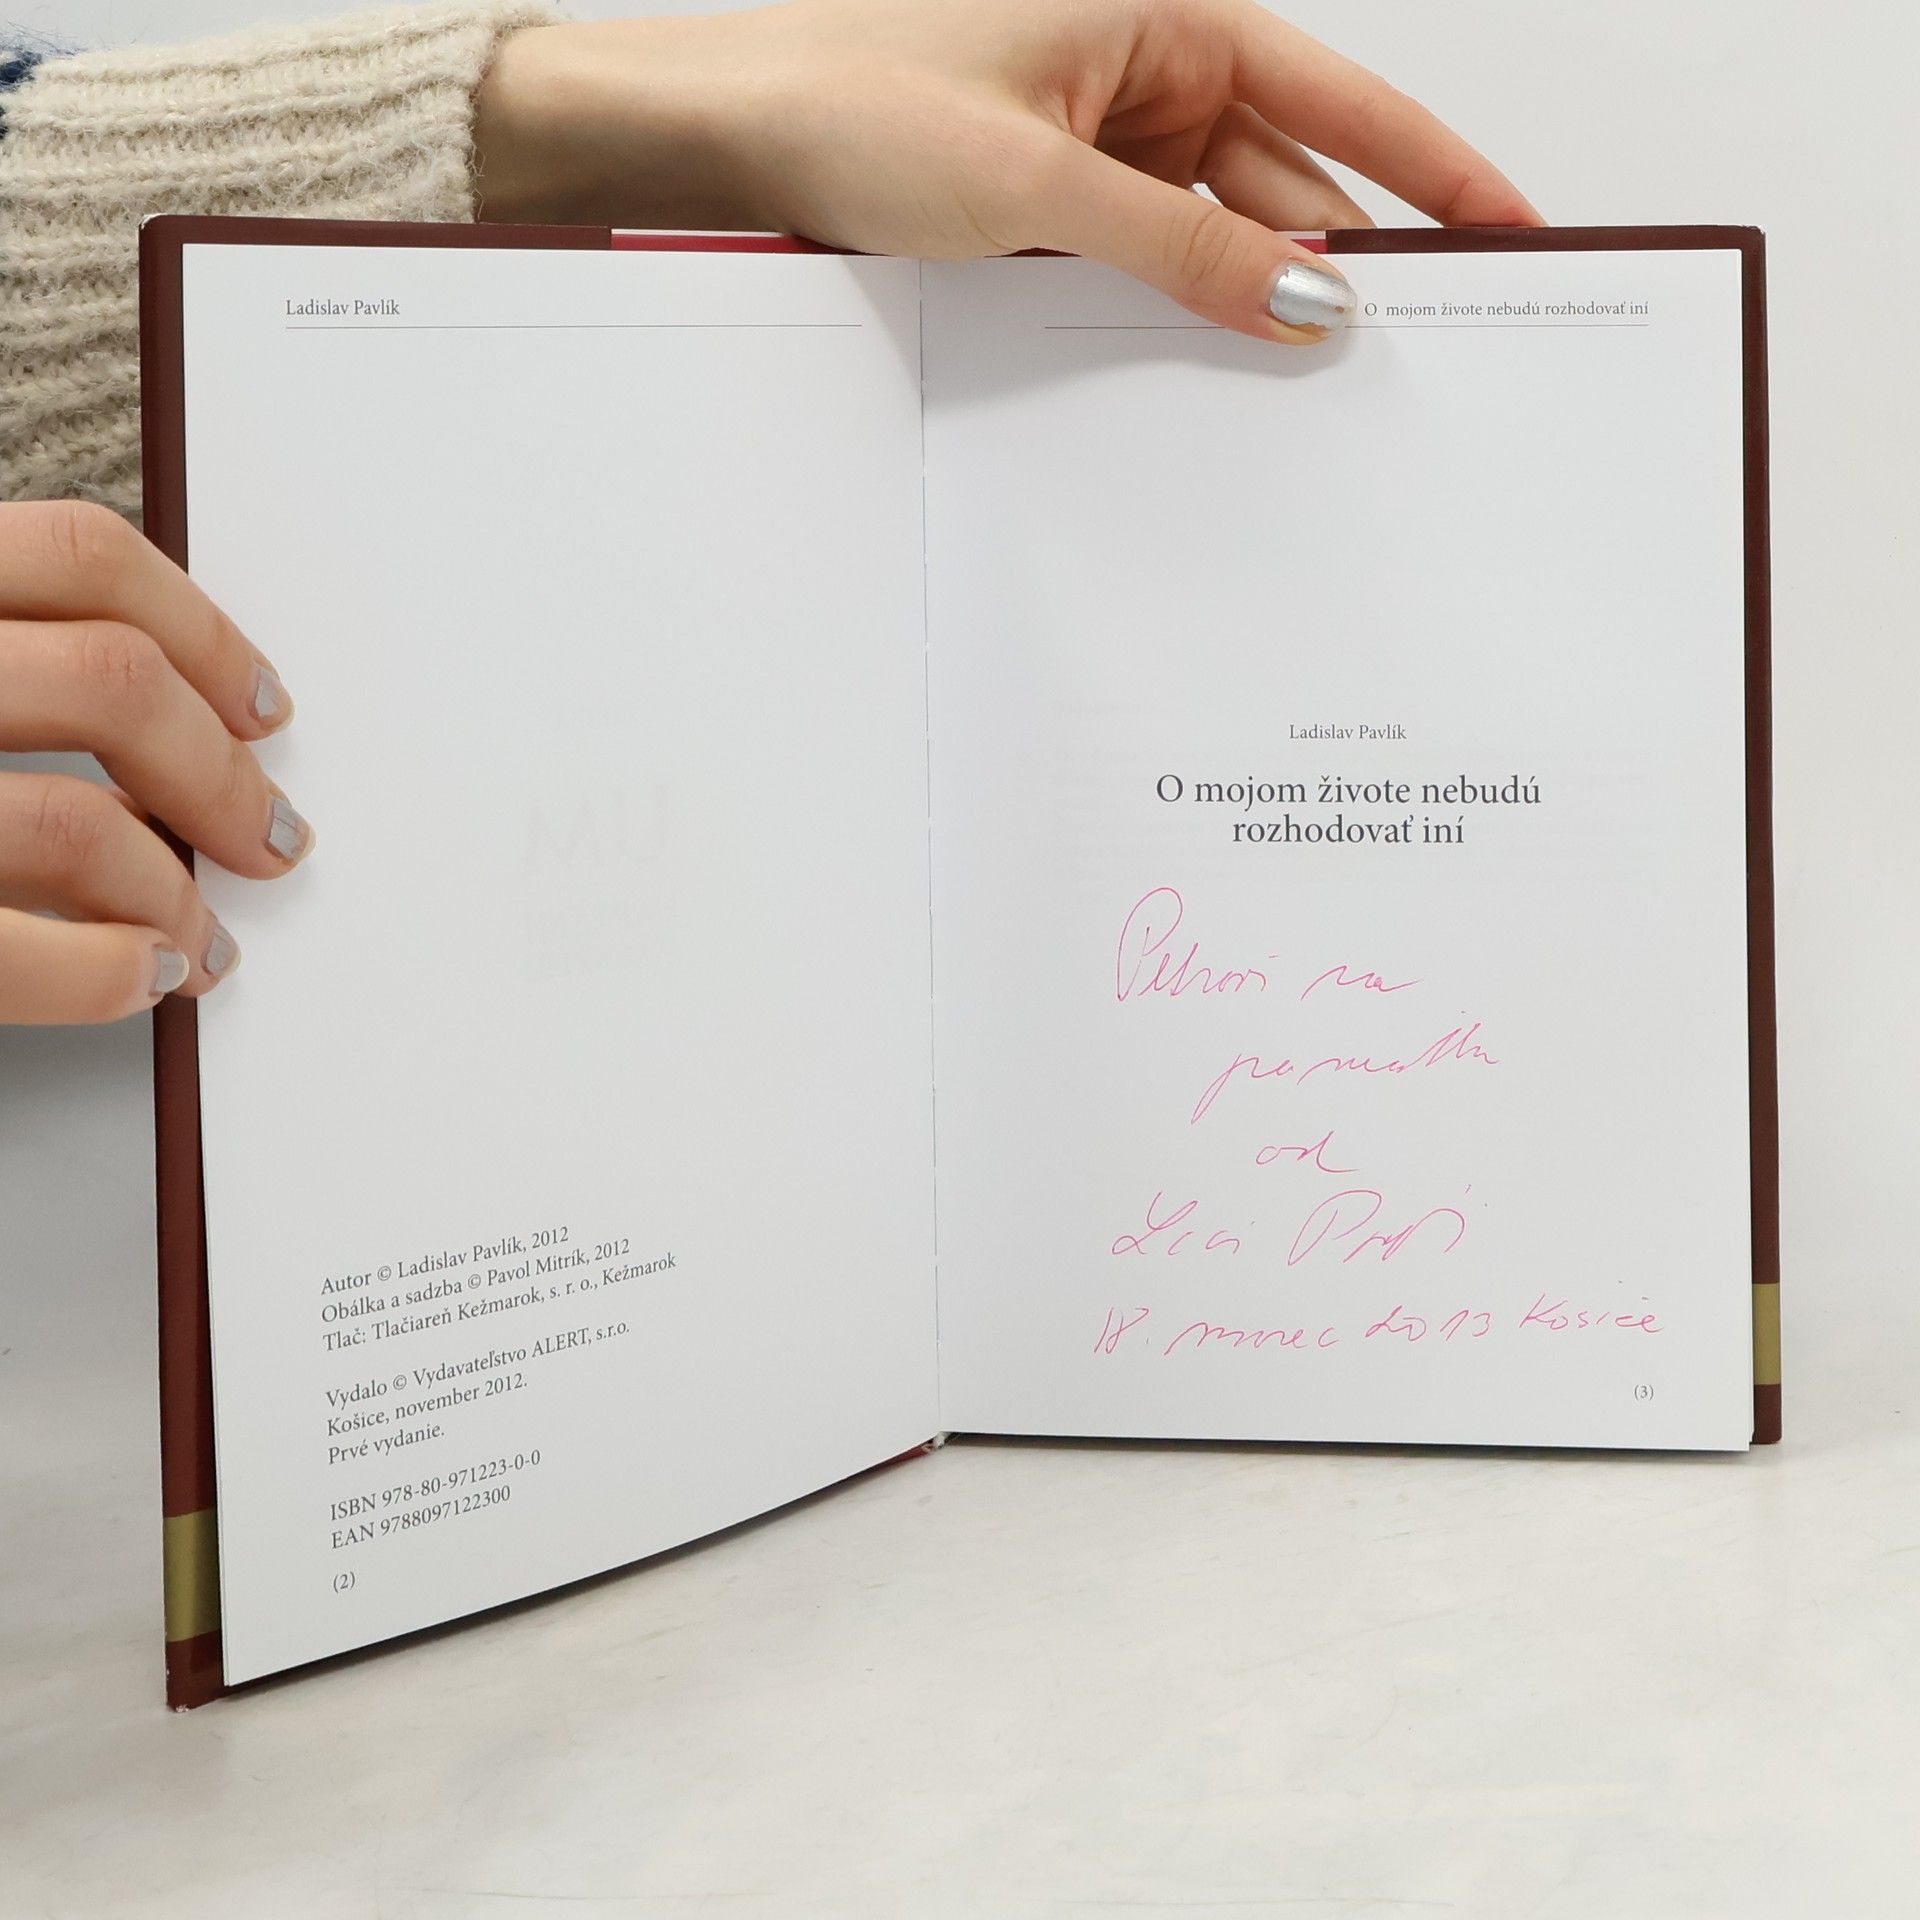 Ladislav Pavlík
Autor © Ladislav Pavlík, 2012
Obálka a sadzba © Pavol Mitrík, 2012
Tlač: Tlačiareň Kežmarok, s. r. o., Kežmarok
Vydalo © Vydavateľstvo ALERT, s.r.o.
Košice, november 2012.
Prvé vydanie.
ISBN 978-80-971223-0-0
EAN 9788097122300
(2)
O mojom živote nebudú rozhodovať iní
Ladislav Pavlík
O mojom živote nebudú
rozhodovať iní
Petrovi na
pamiatku
od
18. marec 2013 Košice
(3)